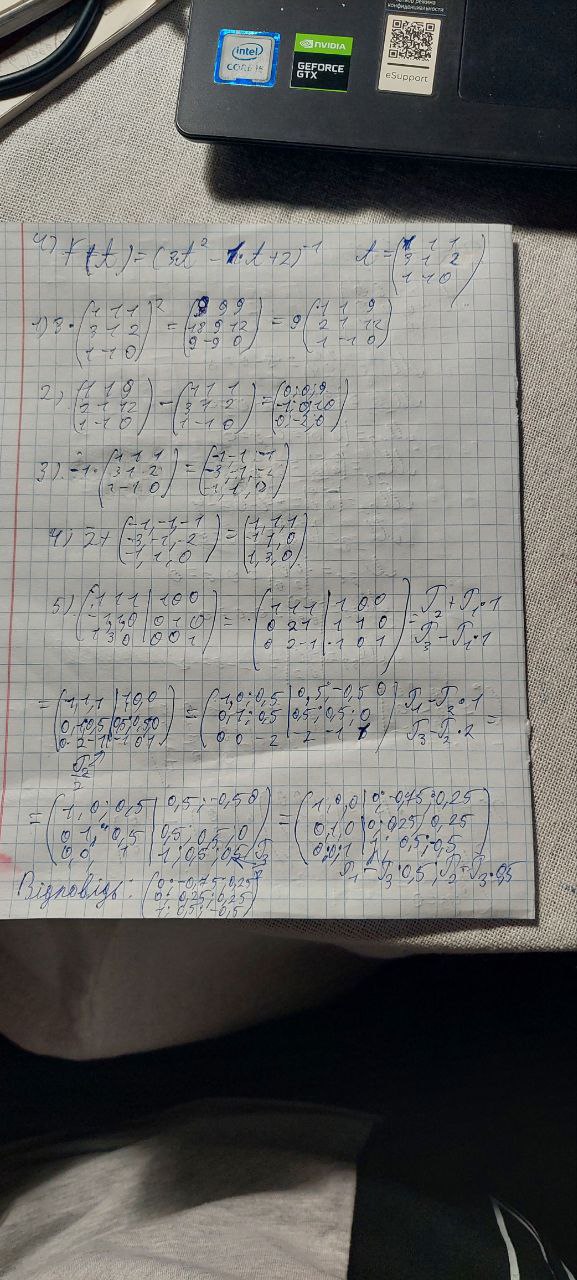 конфиденциальности
intel
CORE i5
NVIDIA
GEFORCE
GTX
eSupport
4) F(A) = (3A² - 1·A + 2)⁻¹ A = (1 1 1
3 1 2
1 -1 0)
1) 3·(1 1 1
3 1 2
1 -1 0)² = (9 9 9
18 9 12
9 -9 0) = 9(1 1 9
2 1 12
1 -1 0)
2) (1 1 9
2 1 12
1 -1 0) - (1 1 1
3 1 2
1 -1 0) =
3) -1·(1 1 1
3 1 2
1 -1 0) = (-1 -1 -1
-3, -1, -2
-1, 1, 0)
4) 2 + (-1, -1, -1
-3, -1, -2
-1, 1, 0) = (1, 1, 1
-1, 1, 0
1, 3, 0)
5) (1 1 1 | 1 0 0
-1, 1, 0 | 0 1 0
1 3 0 | 0 0 1) = (1 1 1 | 1 0 0
0 2 1 | 1 1 0
0 2 -1 | -1 0 1) = Г₂ + Г₁·1
Г₃ - Г₁·1
= (1, 1, 1 | 1 0, 0
0, 1, 0,5 | 0,5; 0,5 0
0 2 -1 | -1 0 1) = (1, 0; 0,5 | 0,5; -0,5 0
0, 1; 0,5 | 0,5; 0,5; 0
0 0 -2 | -2 -1 1) Г₁ - Г₂·1
Г₃ - Г₂·2 =
Г₂
2
= (1, 0; 0,5 | 0,5; -0,5 0
0 1, 0,5 | 0,5; 0,5; 0
0, 0, 1 | 1; 0,5; 0,5 = (1, 0, 0 | 0; -0,75; 0,25
0, 1, 0 | 0; 0,25; 0,25
0; 0; 1 | 1; 0,5; -0,5)
Г₁ - Г₃·0,5; Г₂ - Г₃·0,5
Відповідь: (0; -0,75; 0,25
0; 0,25; 0,25
1; 0,5; -0,5)